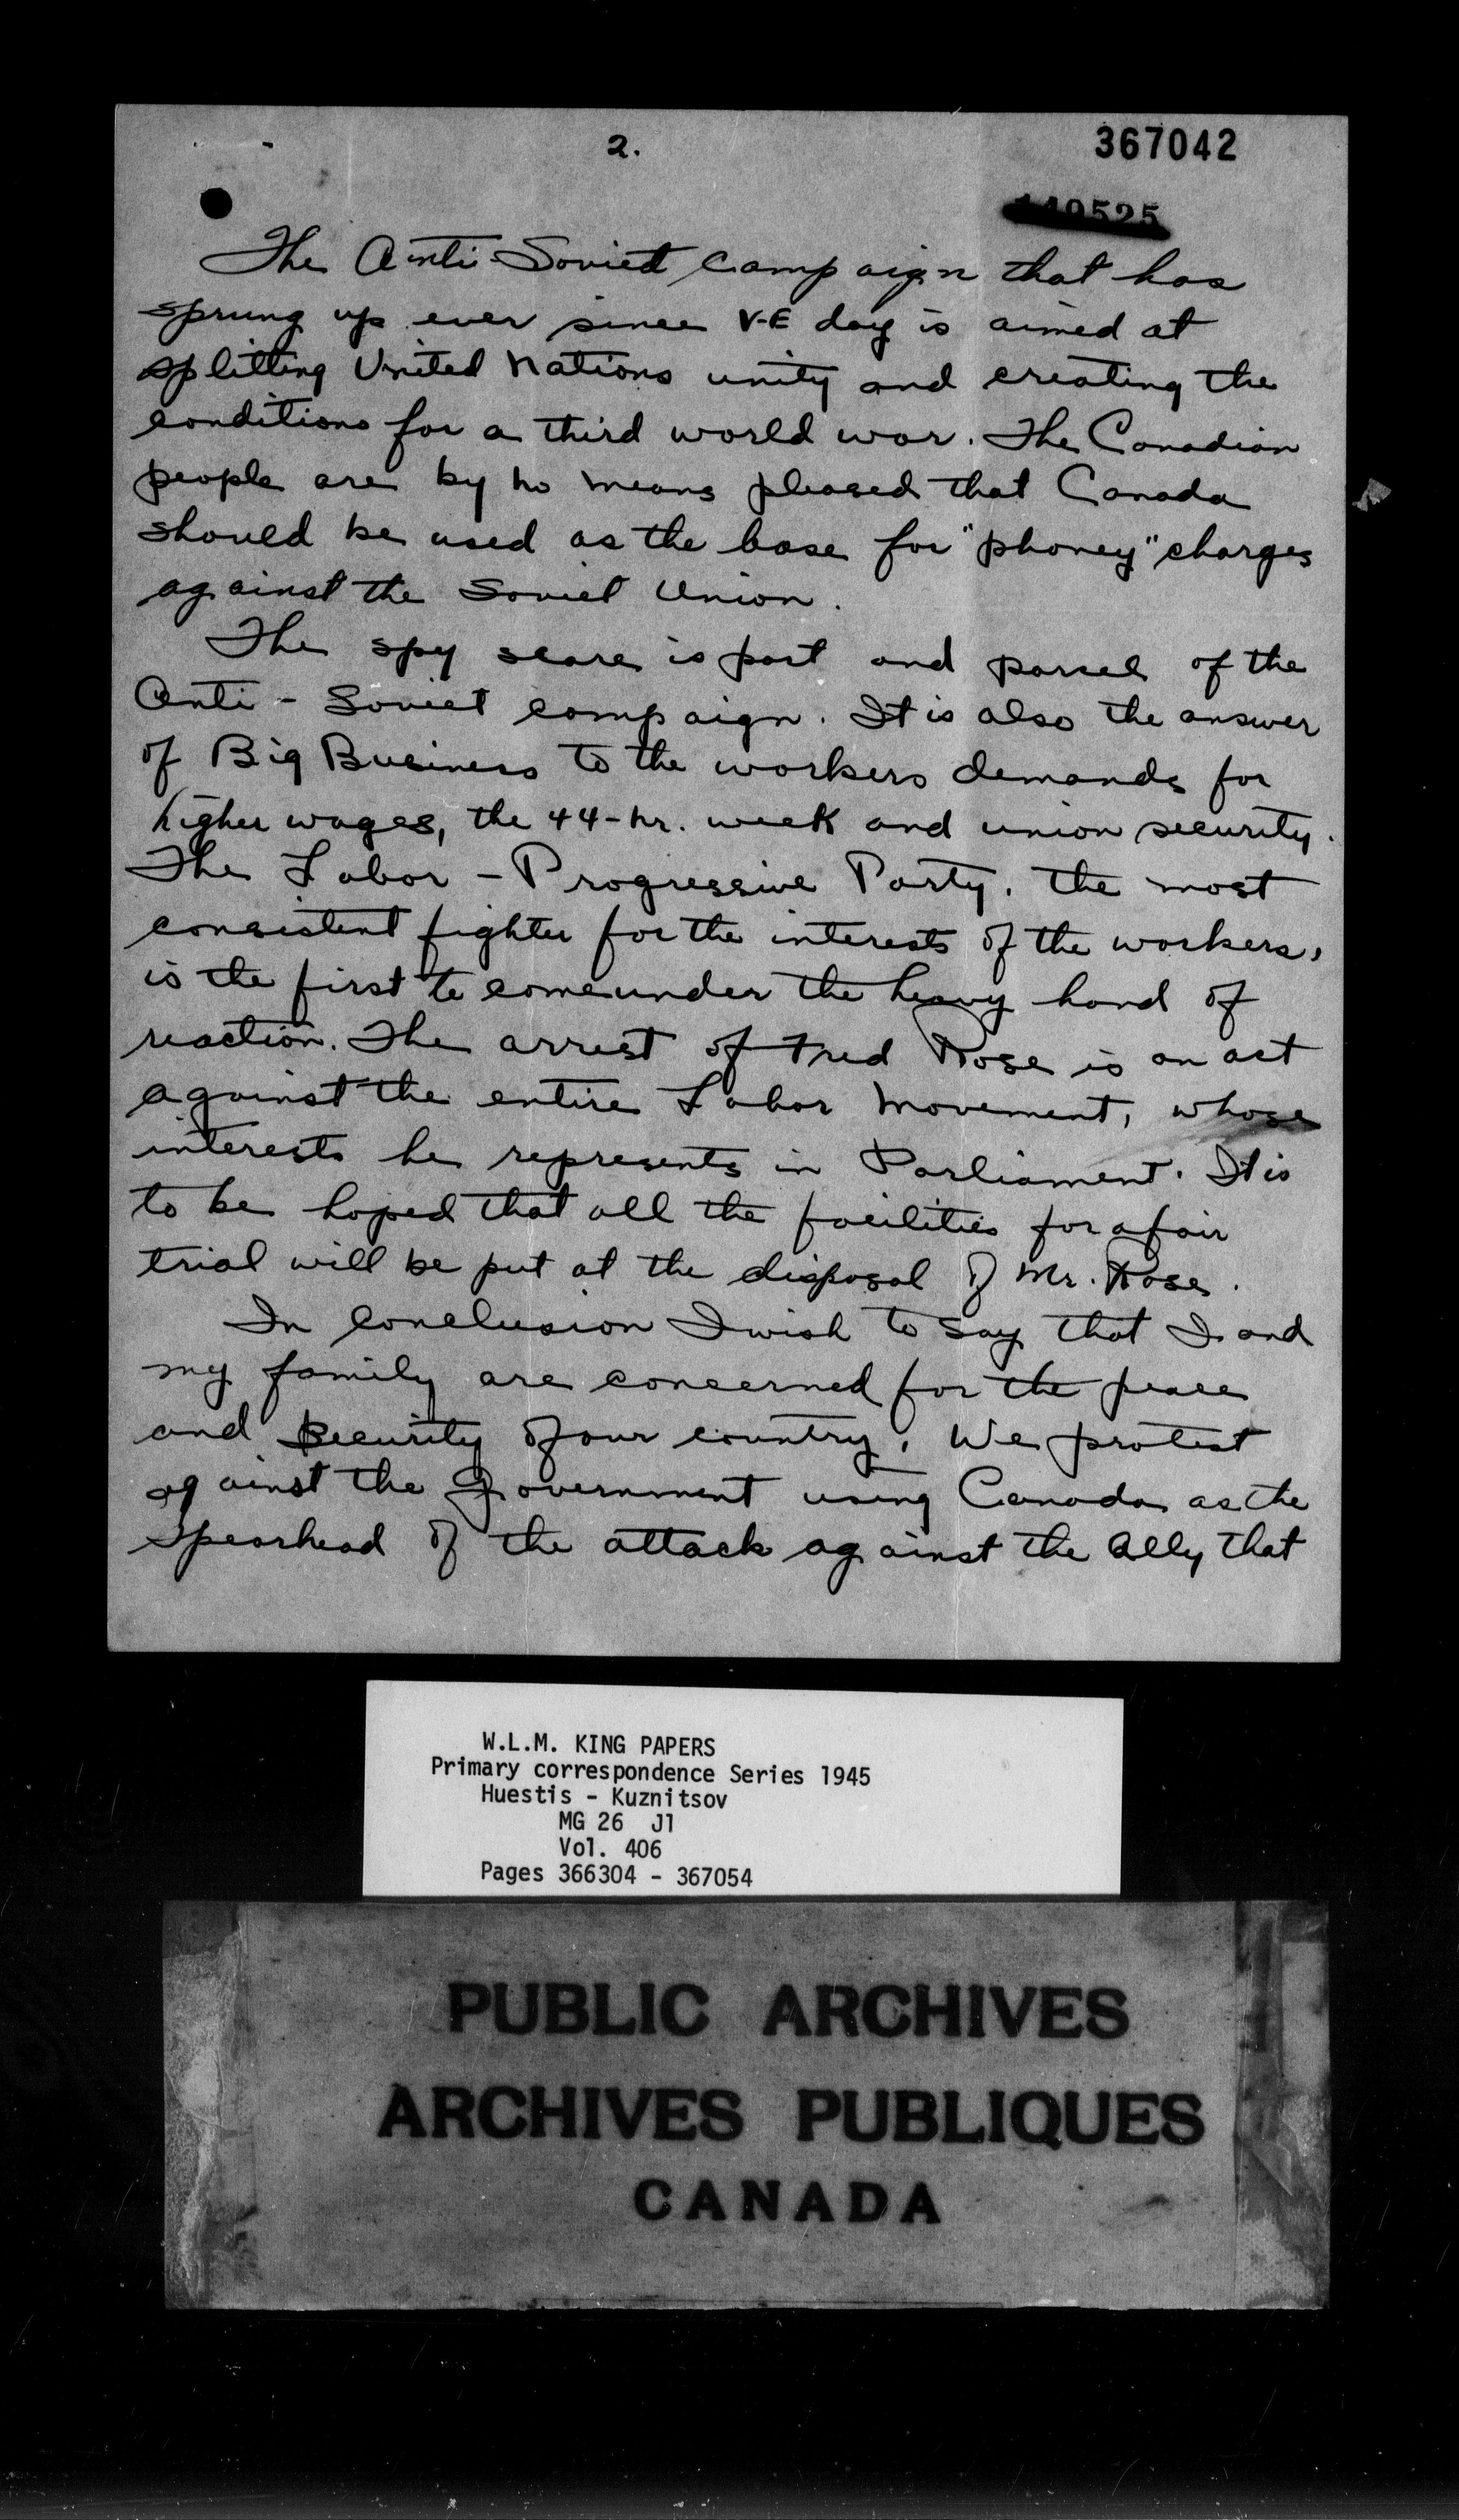 2.
367042
140525
The Anti-Soviet campaign that has
sprung up ever since V-E day is aimed at
splitting United Nations unity and creating the
conditions for a third world war. The Canadian
people are by no means pleased that Canada
should be used as the base for "phoney" charges
against the Soviet Union.
The spy scare is part and parcel of the
Anti-Soviet campaign. It is also the answer
of Big Business to the workers demands for
higher wages, the 44-hr. week and union security.
The Labor-Progressive Party, the most
consistent fighter for the interests of the workers,
is the first to come under the heavy hand of
reaction. The arrest of Fred Rose is an act
against the entire Labor Movement, whose
interests he represents in Parliament. It is
to be hoped that all the facilities for a fair
trial will be put at the disposal of Mr. Rose.
In conclusion I wish to say that I and
my family are concerned for the peace
and security of our country. We protest
against the Government using Canada as the
spearhead of the attack against the Ally that
W.L.M. KING PAPERS
Primary correspondence Series 1945
Huestis - Kuznitsov
MG 26 J1
Vol. 406
Pages 366304 - 367054
PUBLIC ARCHIVES
ARCHIVES PUBLIQUES
CANADA